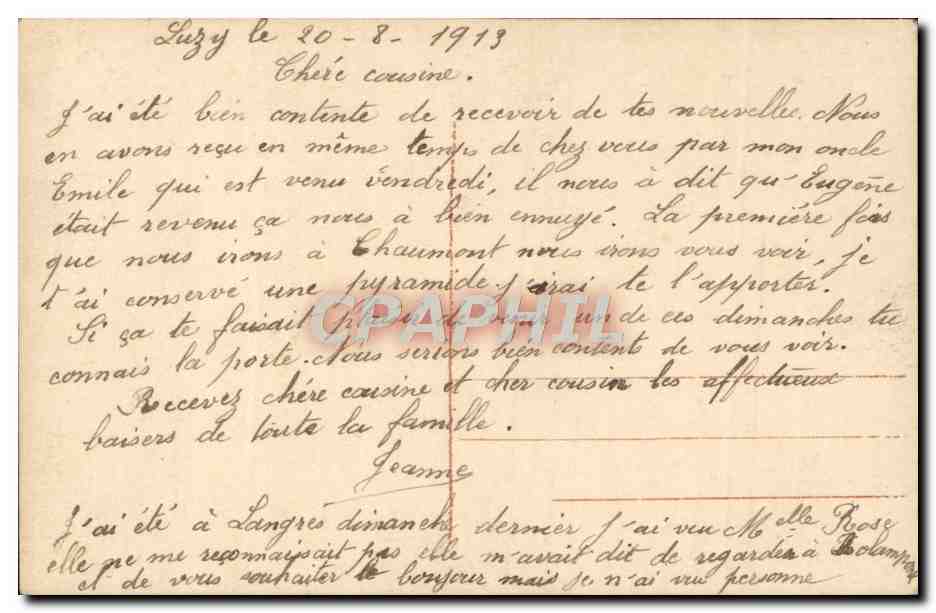 Luzy le 20-8-1913
Chére cousine.
J'ai été bien contente de recevoir de tes nouvelles. Nous
en avons reçu en même temps de chez vous par mon oncle
Emile qui est venu vendredi, il nous à dit qu'Eugène
était revenu ça nous à bien ennuyé. La premiére fois
que nous irons à Chaumont nous irons vous voir, je
t'ai conservé une pyramide j'irai te l'apporter.
Si ça te faisait plaisir de venir un de ces dimanches tu
connais la porte. Nous serions bien contents de vous voir.
Recevez chére cousine et cher cousin les affectueux
baisers de toute la famille.
Jeanne
J'ai été à Langres dimanche dernier j'ai vu Melle Rose
elle ne me reconnaissait pas elle m'avait dit de regarder à Rolampont
et de vous souhaiter le bonjour mais je n'ai vu personne
CPAPHIL